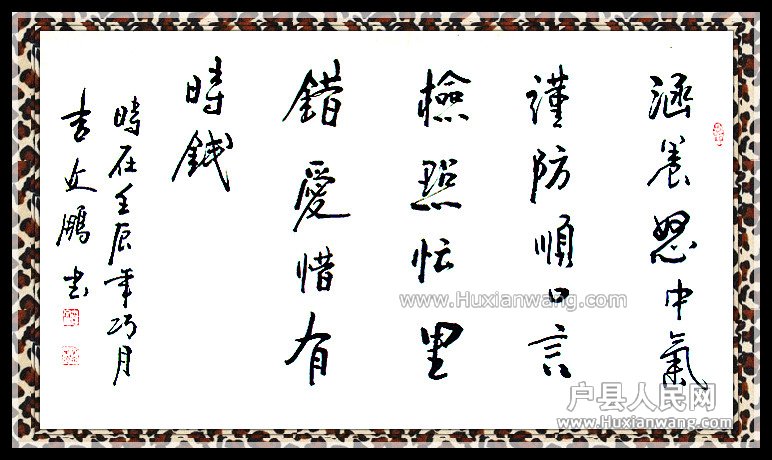 涵養怒中氣
謹防順口言
檢點忙里
錯愛惜有
時錢
時在壬辰年巧月
吉文鵬书
www.Huxianwang.com
户县人民网
www.Huxianwang.com